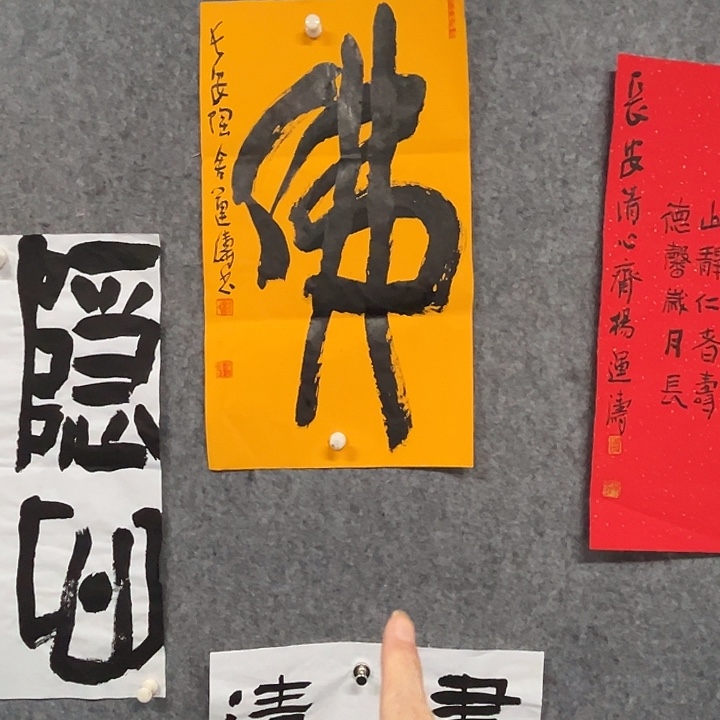 佛
長安隱舍運濤書
隱
山靜仁者壽
德馨歲月長
長安清心齋楊運濤
清
書